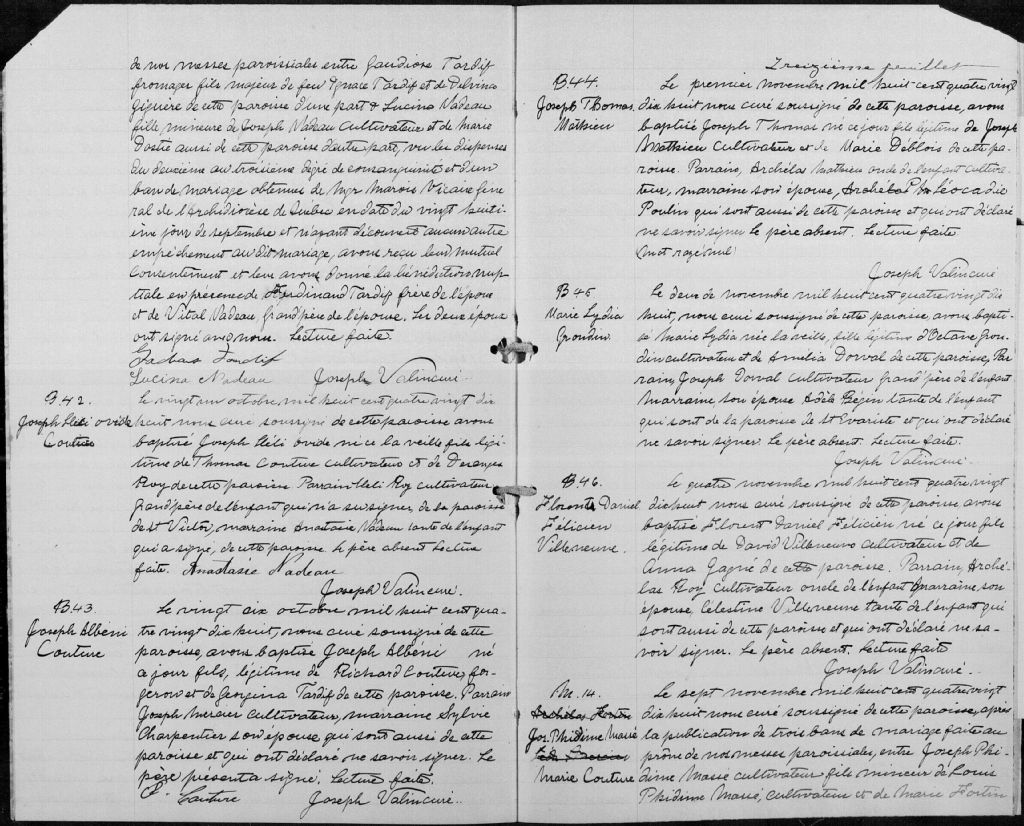 de nos messes paroissiales entre Gaudiose Tardif
fromager fils majeur de feu Ignace Tardif et de Delvina
Giguère de cette paroisse d'une part & Lucina Nadeau
fille mineure de Joseph Nadeau cultivateur et de Marie
Dostie aussi de cette paroisse d'autre part, vu les dispenses
du deuxième au troisième dégré de consanguinité et d'un
ban de mariage obtenues de Mgr Marois Vicaire Géné
ral de l'Archidiocèse de Québec en date du vingt huiti-
ème jour de septembre et n'ayant découvert aucun autre
empêchement au dit mariage, avons reçu leur mutuel
consentement et leur avons donné la bénédiction nup-
tiale en présence de Ferdinand Tardif frère de l'époux
et de Vital Nadeau grand père de l'épouse. Les deux époux
ont signé avec nous. Lecture faite.
Tardif
Lucina Nadeau Joseph Valincuré.
B. 42.
Joseph Héli ovide
Couture
Le vingt un octobre, mil huit cent quatre vingt dix
huit nous curé soussigné de cette paroisse avons
baptisé Joseph Héli ovide né ce la veille fils légi
time de Thomas Couture cultivateur et de Deranges
Roy de cette paroisse Parrain Héli Roy cultivateur
grand père de l'enfant qui n'a su signer, de la paroisse
de St Victor, marraine Anastasie Nadeau tante de l'enfant
qui a signé, de cette paroisse le père absent Lecture
faite. Anastasie Nadeau
Joseph Valincuré.
B43.
Joseph Albéni
Couture
Le vingt six octobre mil huit cent qua-
tre vingt dix huit, nous curé soussigné de cette
paroisse, avons baptisé Joseph Albéni né
ce jour fils, légitime de Richard Couture, for-
geron et de Georgina Tardif de cette paroisse. Parrain
Joseph Mercier cultivateur, marraine Sylvie
Charpentier son épouse qui sont aussi de cette
paroisse et qui ont déclaré ne savoir signer. Le
père présent a signé, Lecture faite.
Couture Joseph Valincuré.
Treizième feuillet
B44.
Joseph Thomas
Mathieu
Le premier novembre mil huit cent quatre vingt
dix huit nous curé soussigné de cette paroisse, avons
baptisé Joseph Thomas né ce jour fils légitime de Joseph
Mathieu cultivateur et de Marie Deblois de cette pa-
roisse. Parrain, Archélas Mathieu oncle de l'enfant cultiva-
teur, marraine son épouse, Léocadie
Poulin qui sont aussi de cette paroisse et qui ont déclaré
ne savoir signer le père absent. Lecture faite
(mot rayé nul
Joseph Valincuré
B 45
Marie Lydia
Grondin
Le deux de novembre mil huit cent quatre vingt dix
huit, nous curé soussigné de cette paroisse, avons bapti-
sé Marie Lydia née la veille, fille légitime d'Octave Gron-
din cultivateur et de Amélia Dorval de cette paroisse, Par
rain Joseph Dorval cultivateur grand père de l'enfant
Marraine son épouse Adèle Bégin tante de l'enfant
qui sont de la paroisse de St Evariste et qui ont déclaré
ne savoir signer. Le père absent. Lecture faite.
Joseph Valincuré.
B.46.
Florent Daniel
Félicien
Villeneuve.
Le quatre novembre mil huit cent quatre vingt
dix huit nous curé soussigné de cette paroisse, avons
baptisé Florent Daniel Félicien né ce jour fils
légitime de David Villeneuve cultivateur et de
Anna Gagné de cette paroisse. Parrain, Arché-
las Roy cultivateur oncle de l'enfant Marraine, son
épouse, Célestine Villeneuve tante de l'enfant qui
sont aussi de cette paroisse et qui ont déclaré ne sa-
voir signer. Le père absent. Lecture faite
Joseph Valincuré.
M. 14.
Archélas Fortin
Jos. Phidime Massé
Marie Couture
Le sept novembre mil huit cent quatre vingt
dix huit nous curé soussigné de cette paroisse, après
la publication de trois bans de mariage faite au
prône de nos messes paroissiales, entre Joseph Phi-
dime Massé cultivateur fils mineur de Louis
Phidime Massé, cultivateur et de Marie Fortin